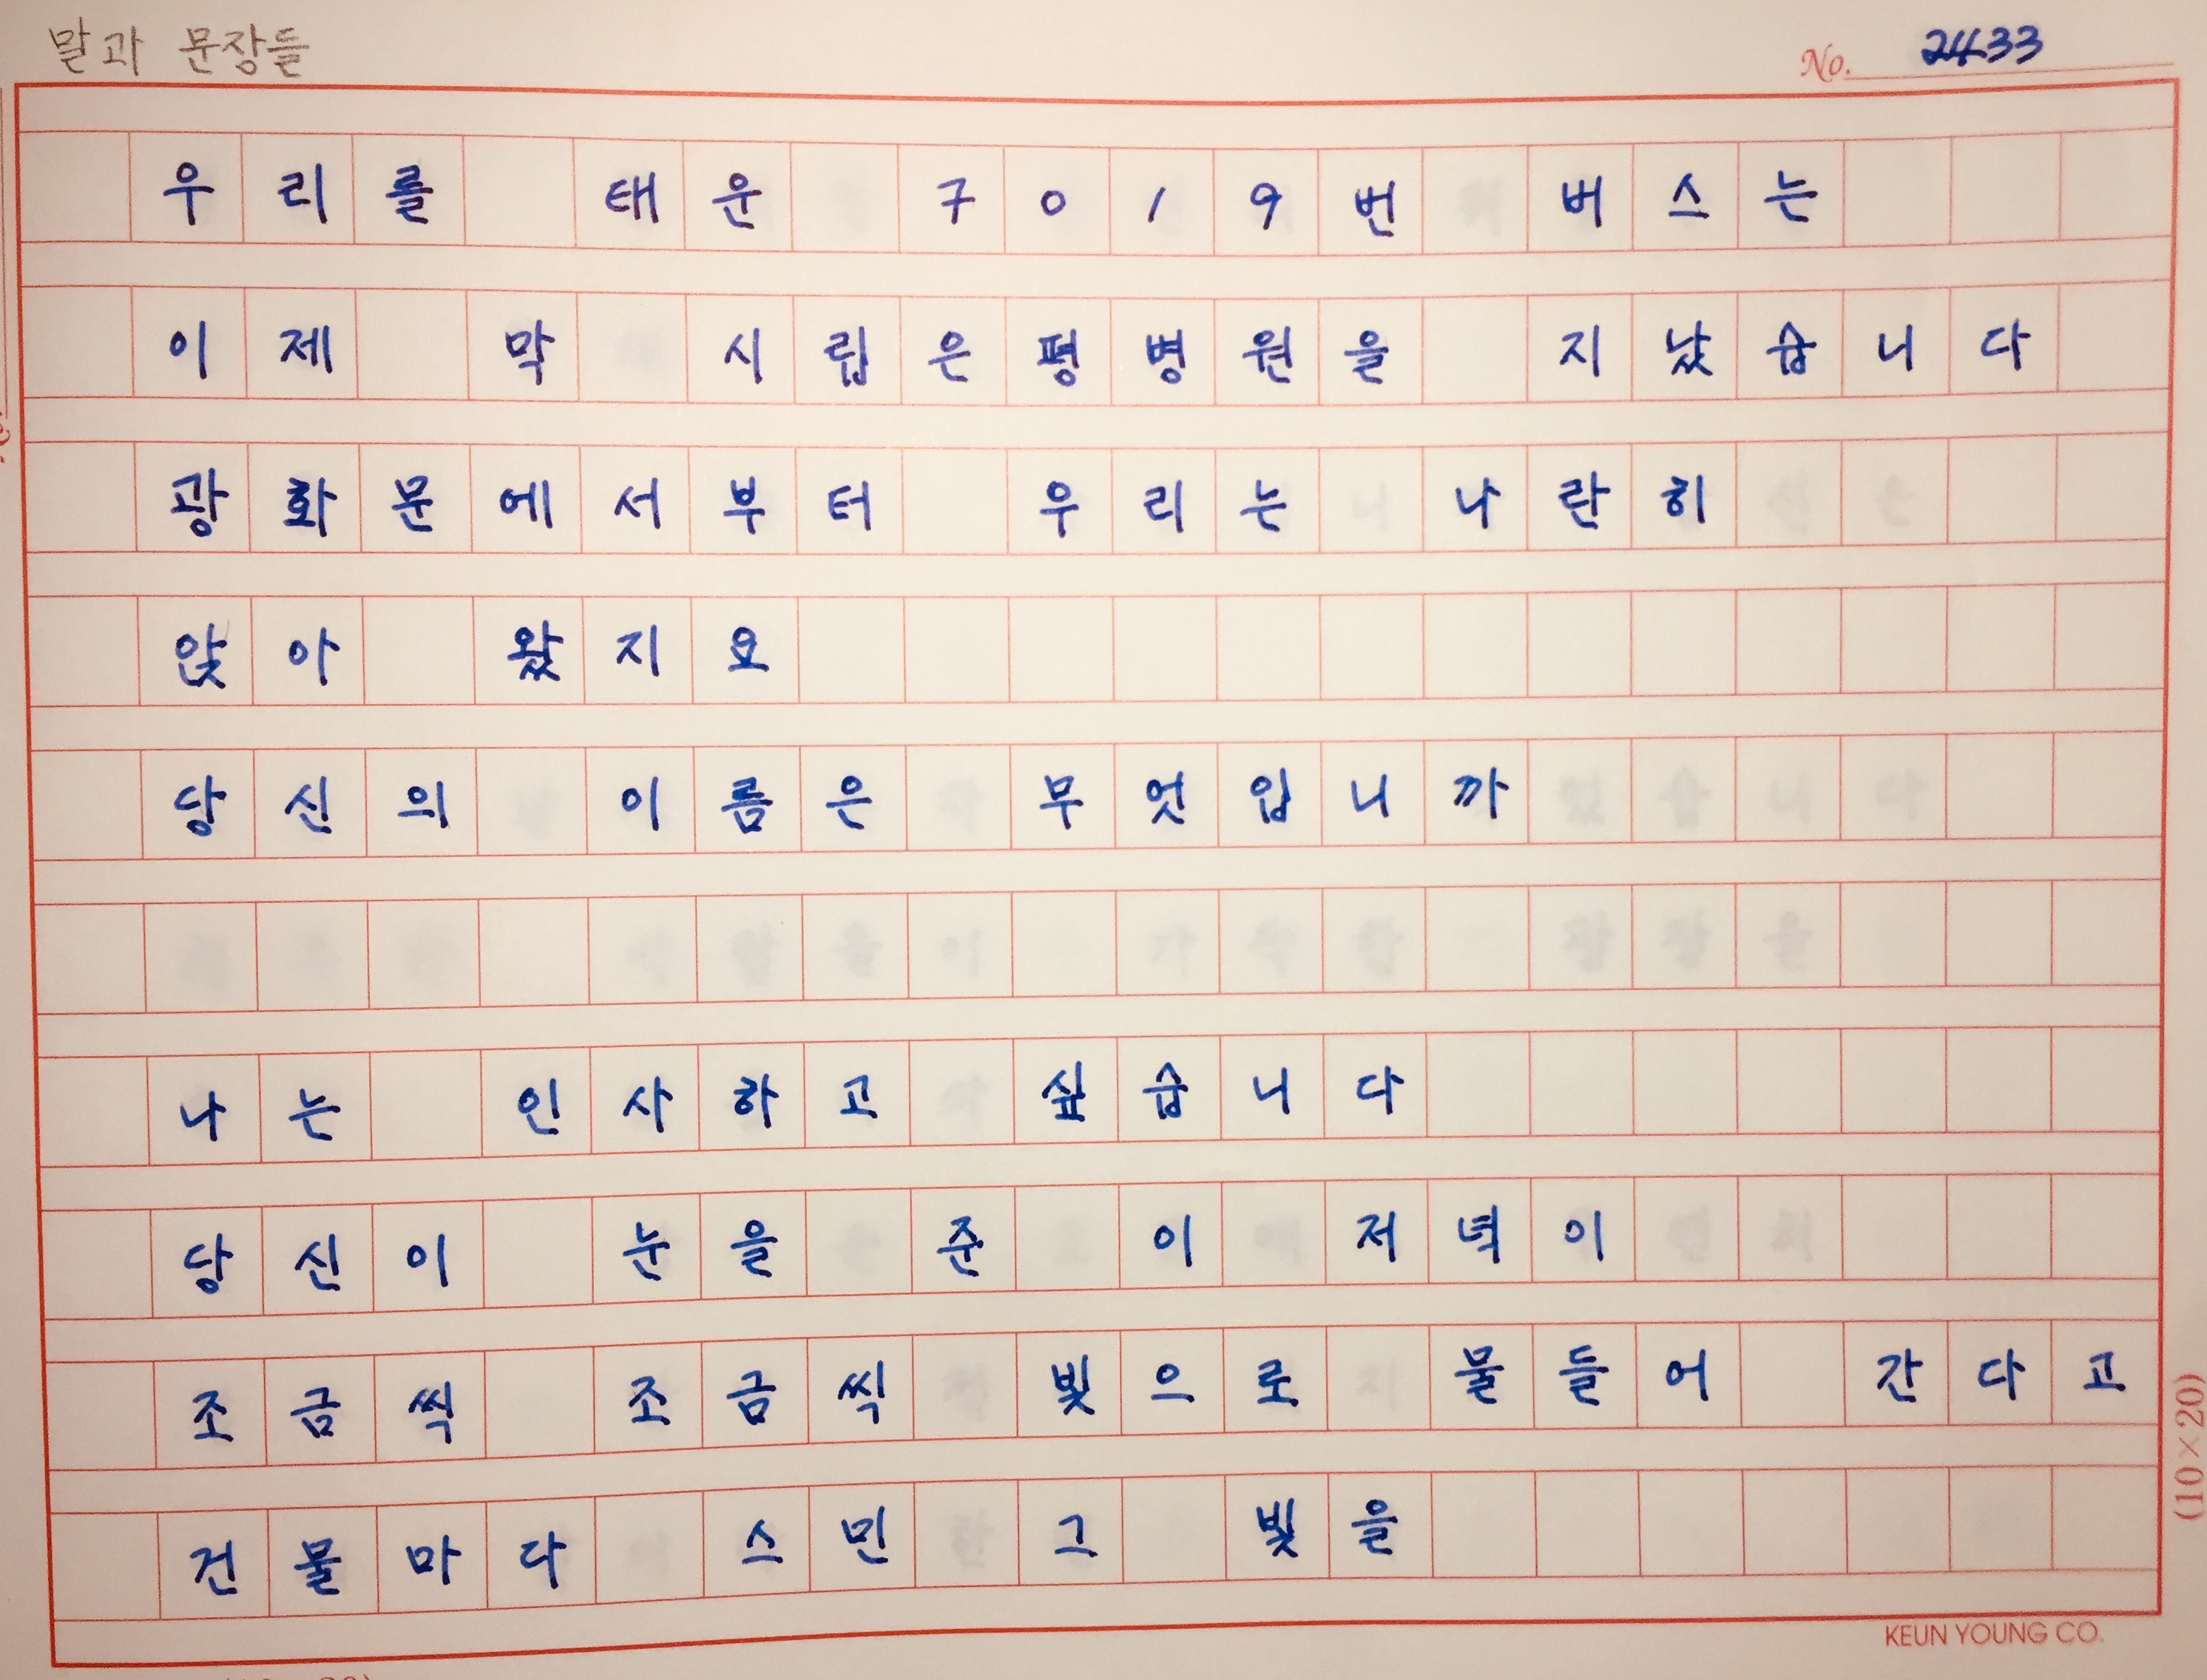 말과 문장들
No. 2433
우리를 태운 7019번 버스는
이제 막 시립은평병원을 지났습니다
광화문에서부터 우리는 나란히
앉아 왔지요
당신의 이름은 무엇입니까
나는 인사하고 싶습니다
당신이 눈을 준 이 저녁이
조금씩 조금씩 빛으로 물들어 간다고
건물마다 스민 그 빛을
(10×20)
KEUN YOUNG CO.